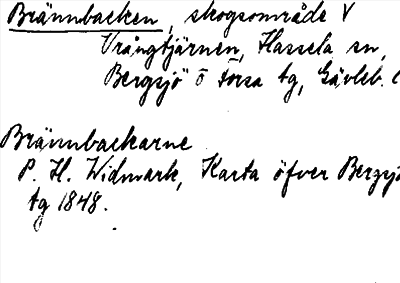 Brännbacken, skogsområde V
Vrångtjärnen, Hassela sn,
Bergsjö o Forsa tg, Gävleb. l
Brännbackarne
P. H. Widmark, Karta öfver Bergsjö
tg 1848.